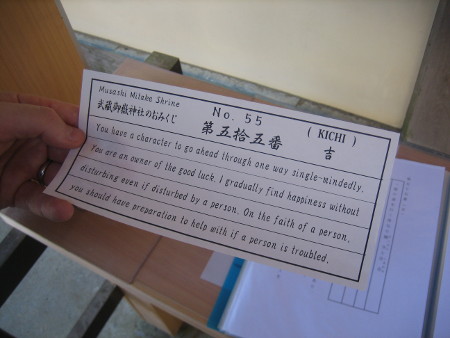 Musashi Mitake Shrine
武蔵御嶽神社のおみくじ
No. 55
第五拾五番
( KICHI )
吉
You have a character to go ahead through one way single-mindedly.
You are an owner of the good luck. I gradually find happiness without
disturbing even if disturbed by a person. On the faith of a person,
you should have preparation to help with if a person is troubled.